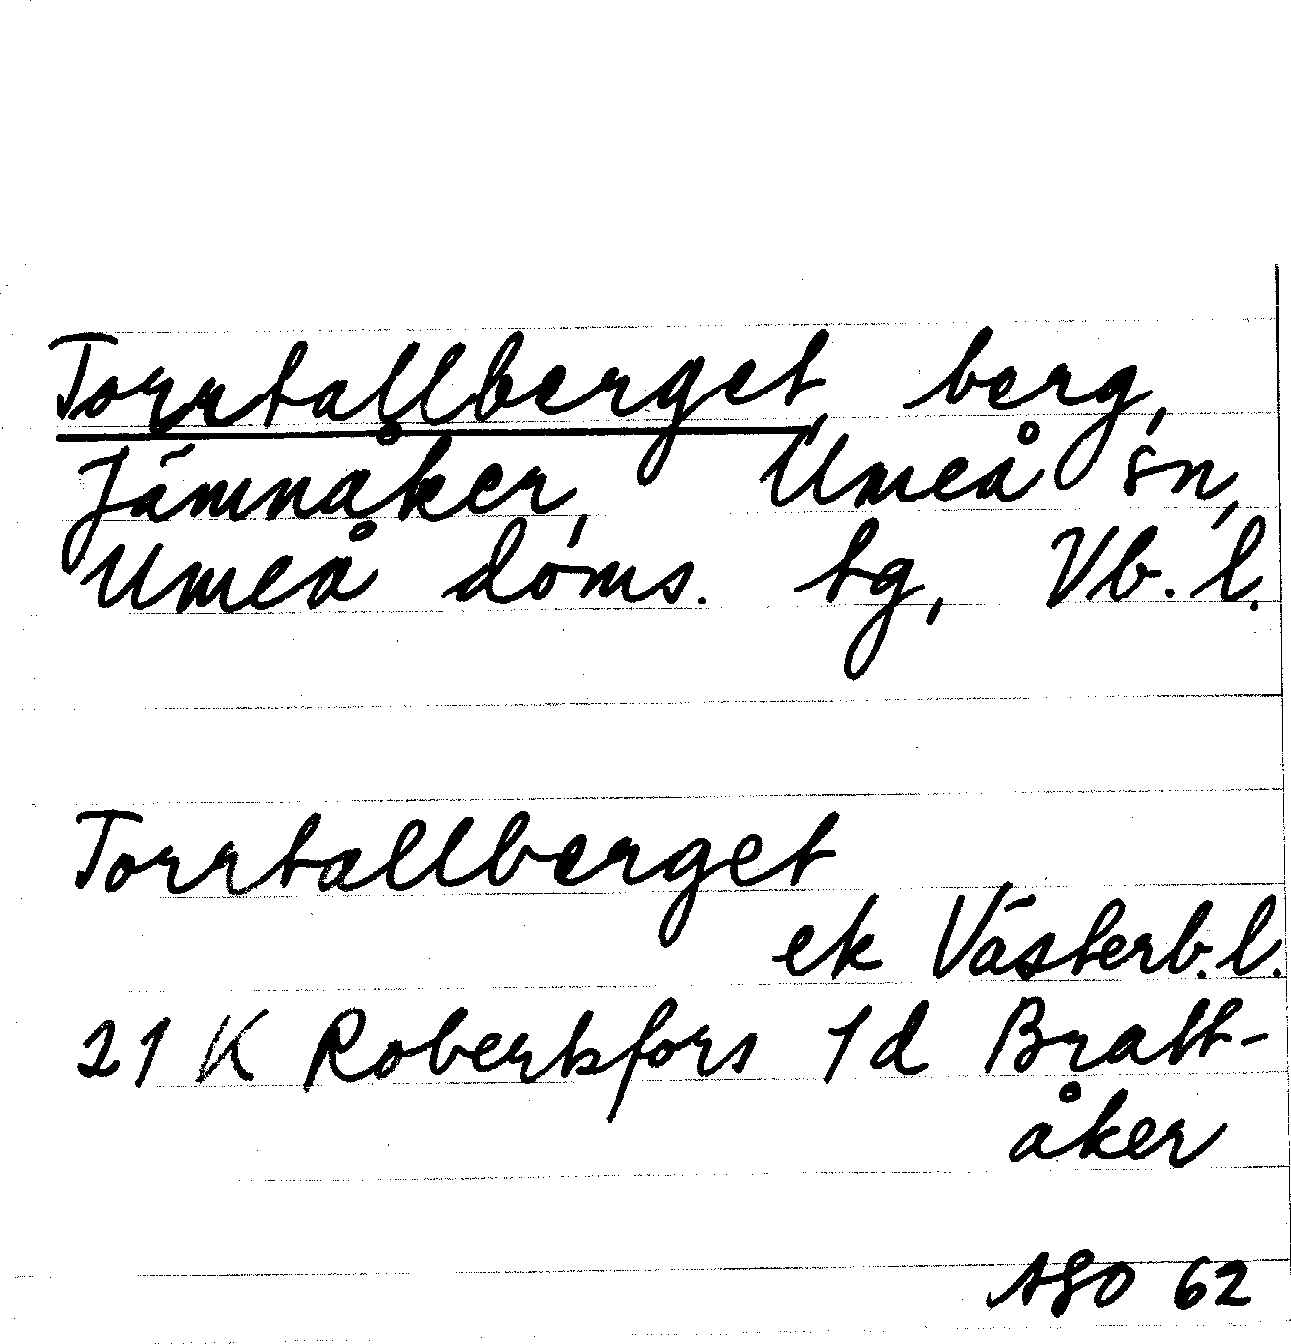 Torrtallberget, berg,
Jämnåker, Umeå sn,
Umeå doms. tg, Vb. l.
Torrtallberget
ek Västerb. l.
21 K Robertsfors 1 d Bratt-
åker
62